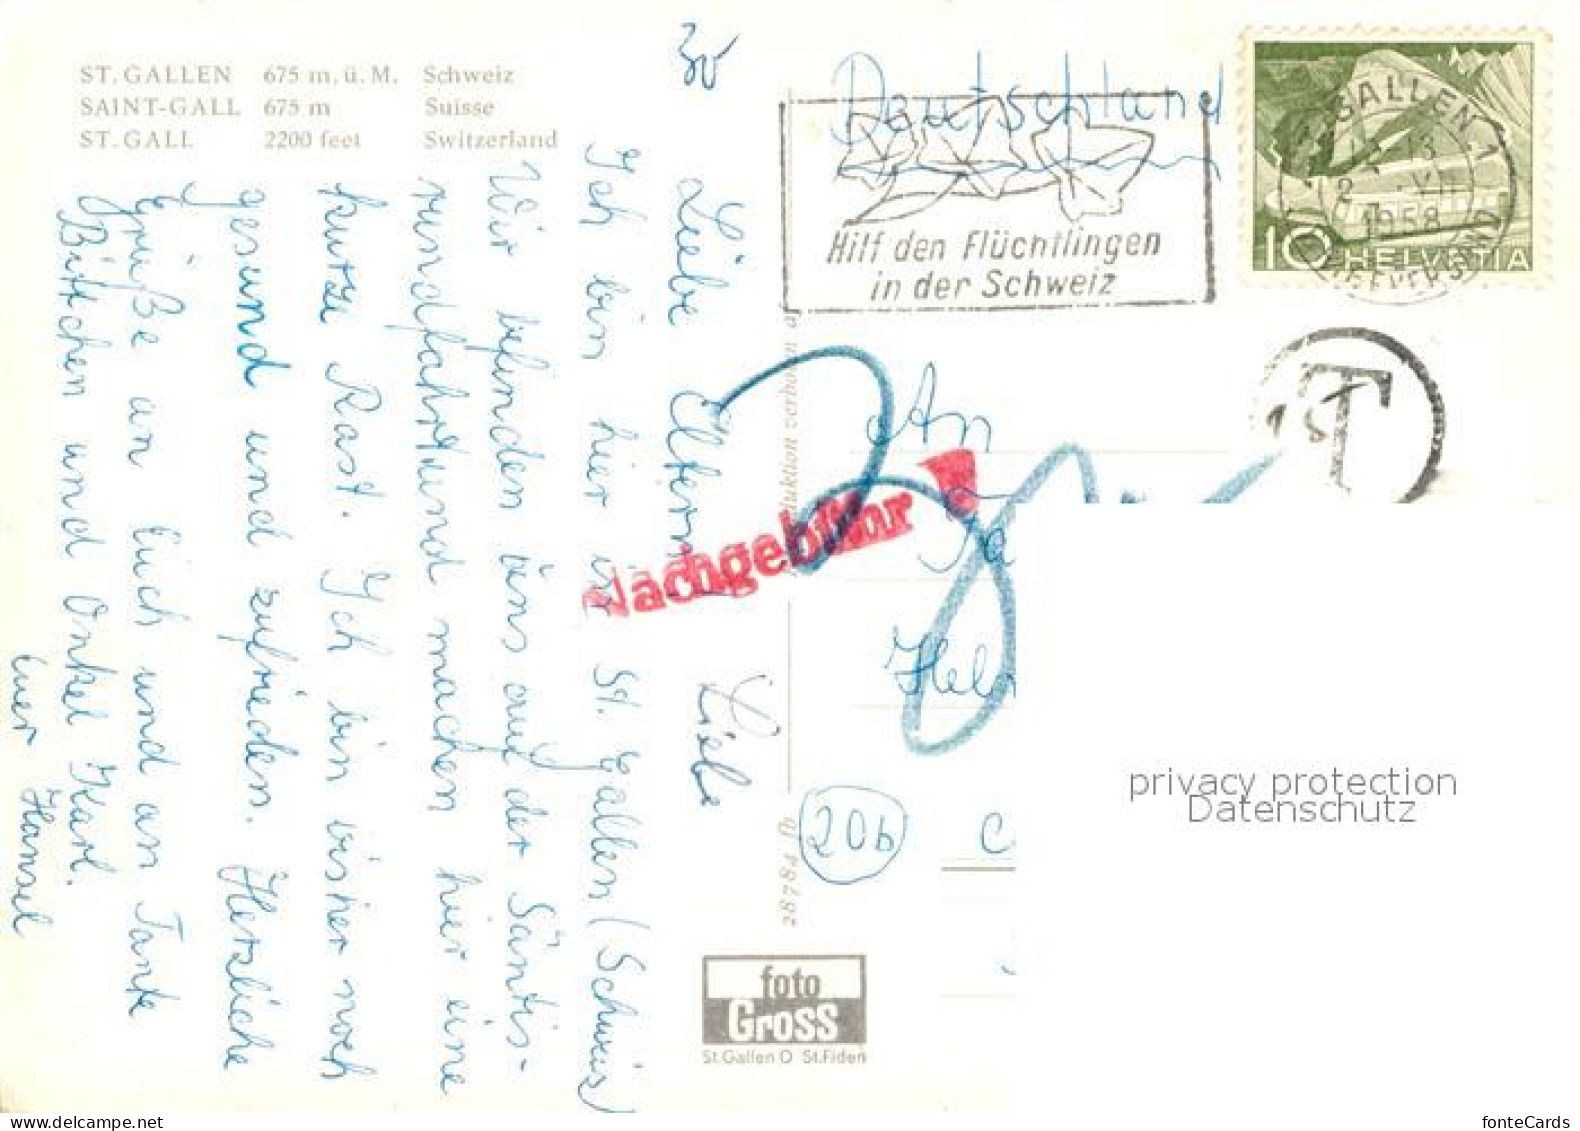 ST. GALLEN 675 m. ü. M. Schweiz
SAINT-GALL 675 m Suisse
ST. GALL 2200 feet Switzerland
30
Deutschland
Hilf den Flüchtlingen
in der Schweiz
GALLEN 1
1958
10 HELVETIA
T
Nachgebühr
An
20b
28784 fb
foto
Gross
St. Gallen O St. Fiden
Liebe Eltern! Liebe
Ich bin hier in St. Gallen (Schweiz)
Wir befinden uns auf der Säntis-
rundfahrt und machen hier eine
kurze Rast. Ich bin bisher noch
gesund und zufrieden. Herzliche
Grüße an Euch und an Tante
Bärbchen und Onkel Karl.
Euer Hansel
privacy protection
Datenschutz
fonteCards